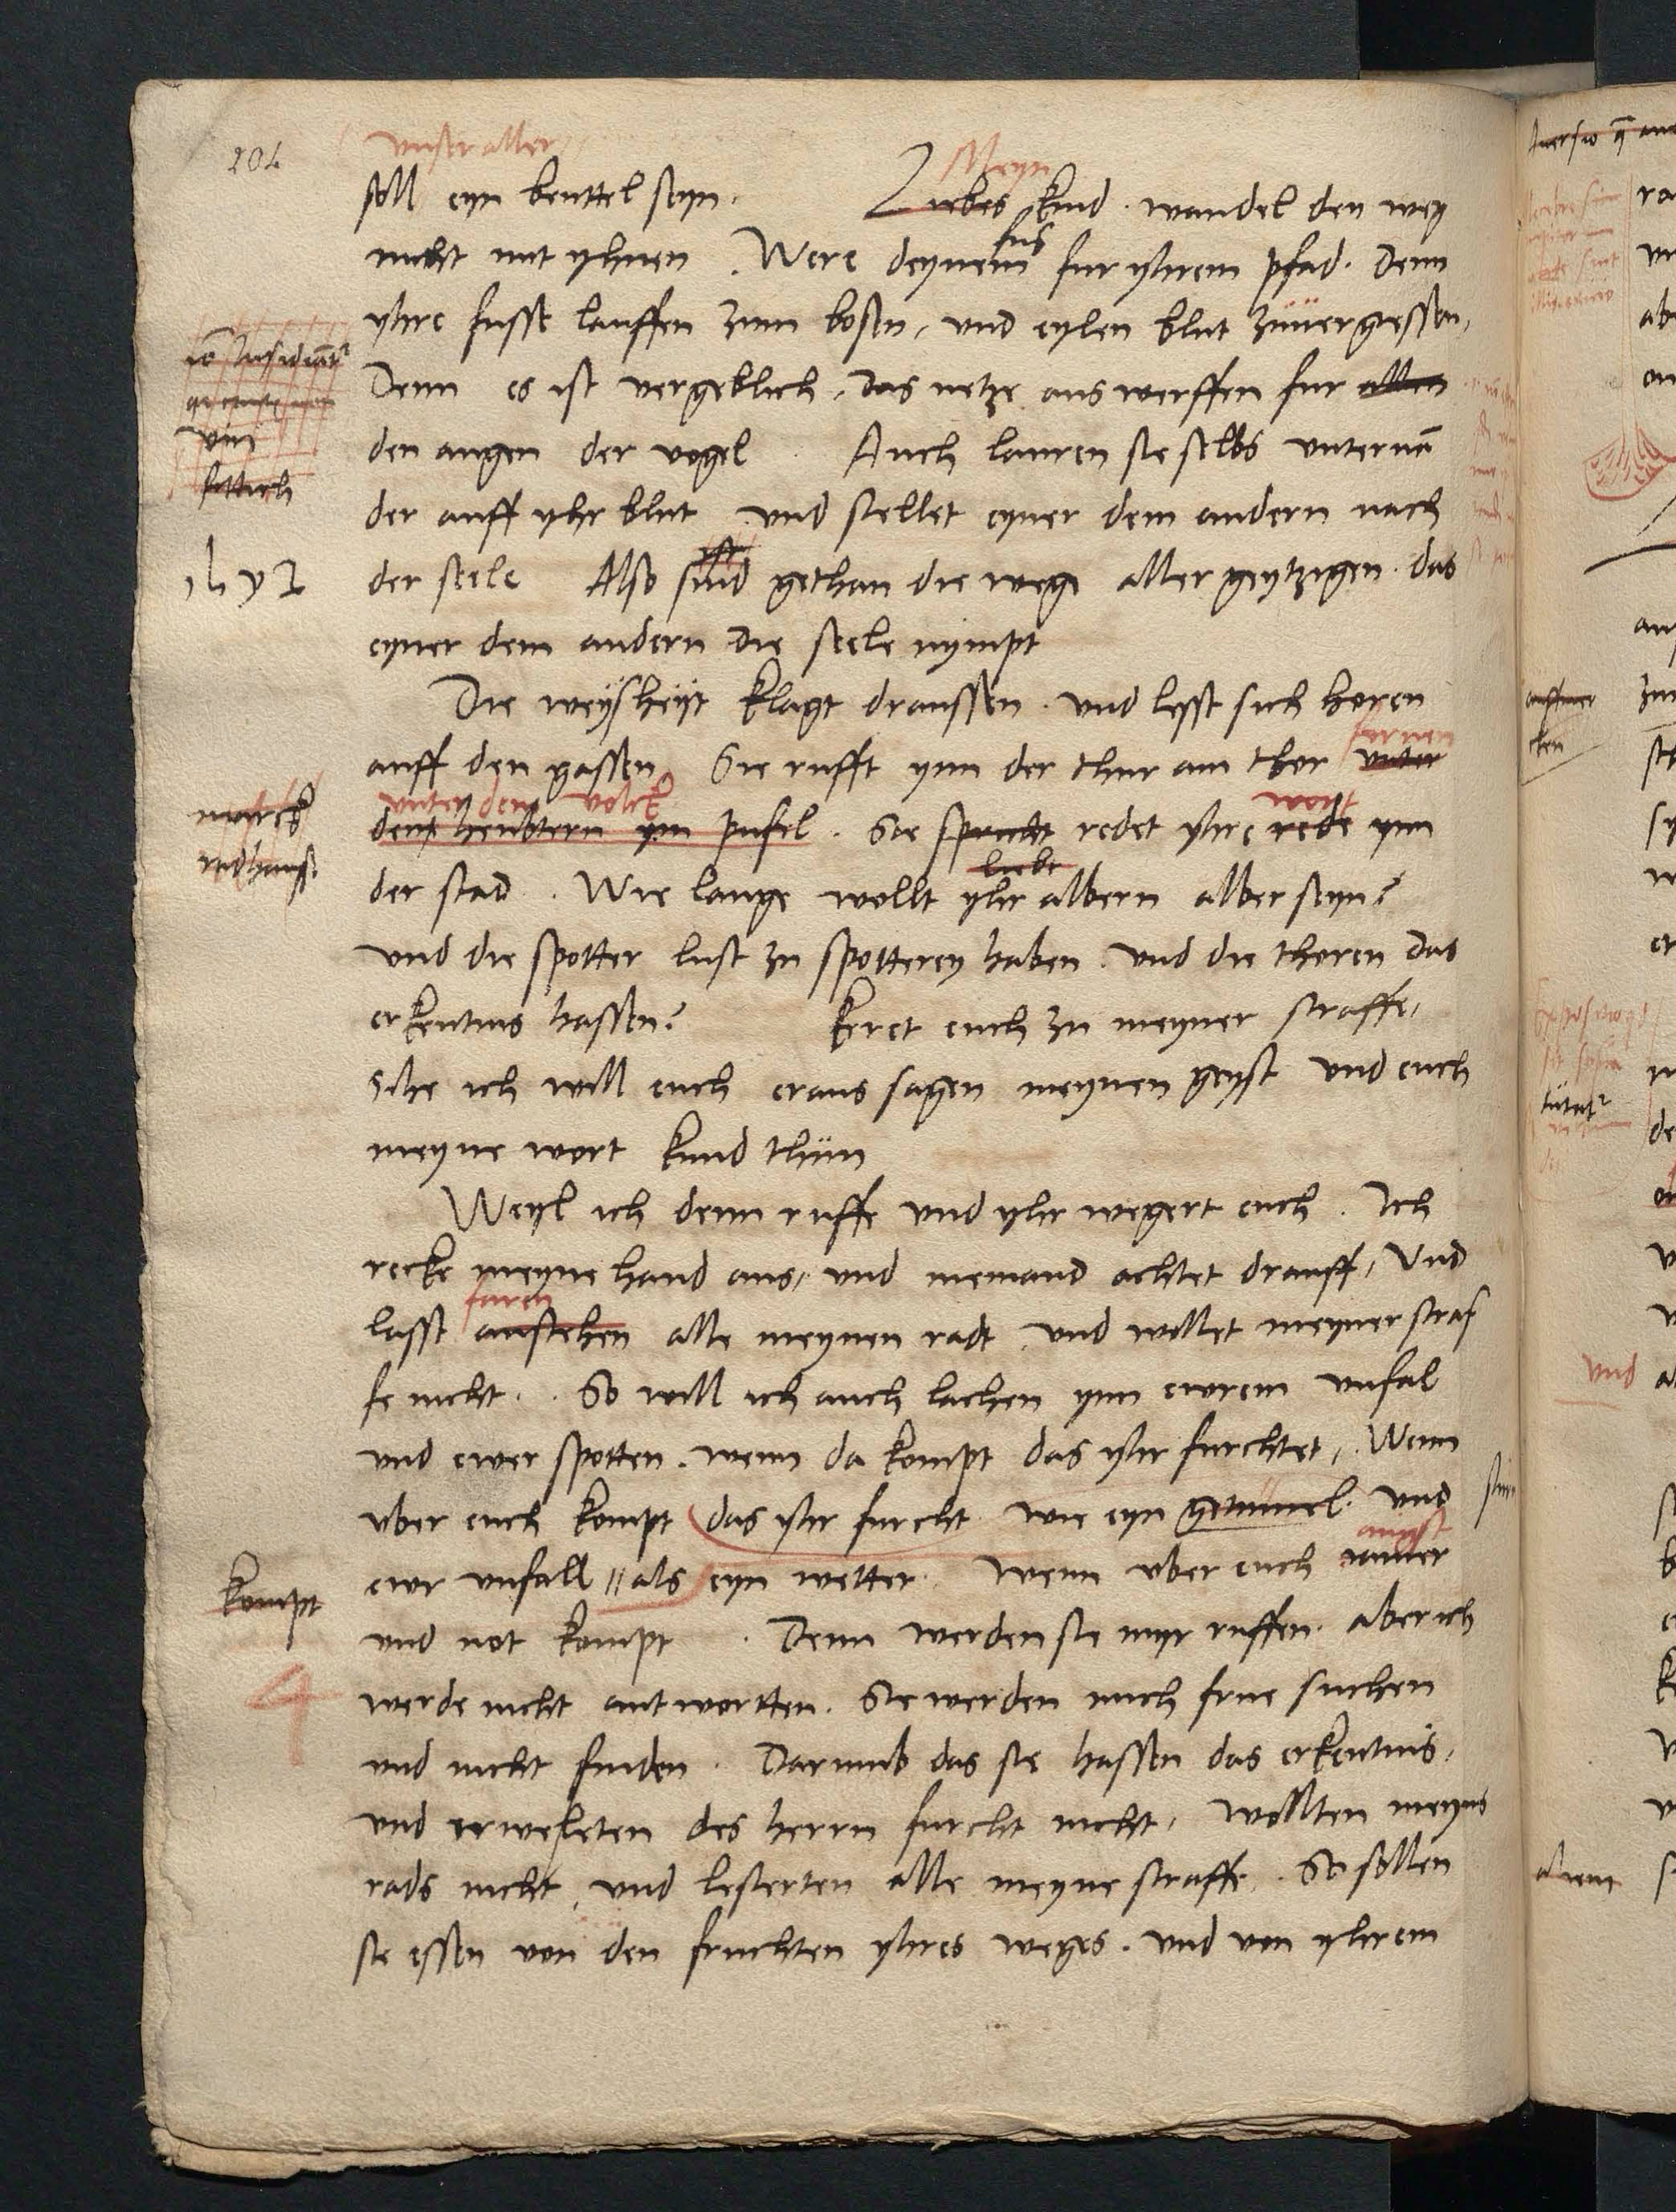 204
unser aller
soll eyn beuttel seyn. Meyn Liebes kind. wandel den weg
nicht mit yhnen. Were deynem fus fur yhrem pfad. Denn
yhre fusse lauffen zum bosen, und eylen blut zuuergessen,
Denn es ist vergeblich, das netze aus werffen fur allen
den augen der vogel Auch lauren sie selbs unternan
der auff yhr blut und stellet eyner dem andern nach
der seele Also sind gethan die wege aller geytzigen. das
eyner dem andern die seele nympt
Die weysheyt klagt draussen. und lesst sich horen
auff den gassen Sie rufft ynn der thur am thor fornen unter
unter dem volck
den heubtern ym pufel. Sie spricht redet yhre wort rede ynn
der stad. Wie lange wollt yhr liebe albern alber seyn?
und die spotter lust zu spotterey haben. und die thoren das
erkentnis hassen? keret euch zu meyner straffe,
Sihe ich will euch eraus sagen meynen geyst und euch
meyne wort kund thun
Weyl ich denn ruffe und yhr wegert euch. Ich
recke meyne hand aus, und niemand achtet drauff, Und
lasst faren anstehen alle meynen radt und wollet meyner straf
fe nicht. So will ich auch lachen ynn ewrem unfal
und ewer spotten. wenn da kompt das yhr furchtet, Wenn
uber euch kompt das yhr furcht wie eyn getumel. und
ewr unfall als eyn wetter. Wenn uber euch angst iamer
und not kompt. Denn werden sie myr ruffen. aber ich
werde nicht antwortten. Sie werden mich frue suchen
und nicht finden. Darumb das sie hassen das erkentnis,
und erweleten des herrn furcht nicht, Wollten meyns
rads nicht, und lesterten alle meyne straffe. So sollen
sie essen von den fruchten yhres weges. und von yhrem
fittich
kompt
4
und